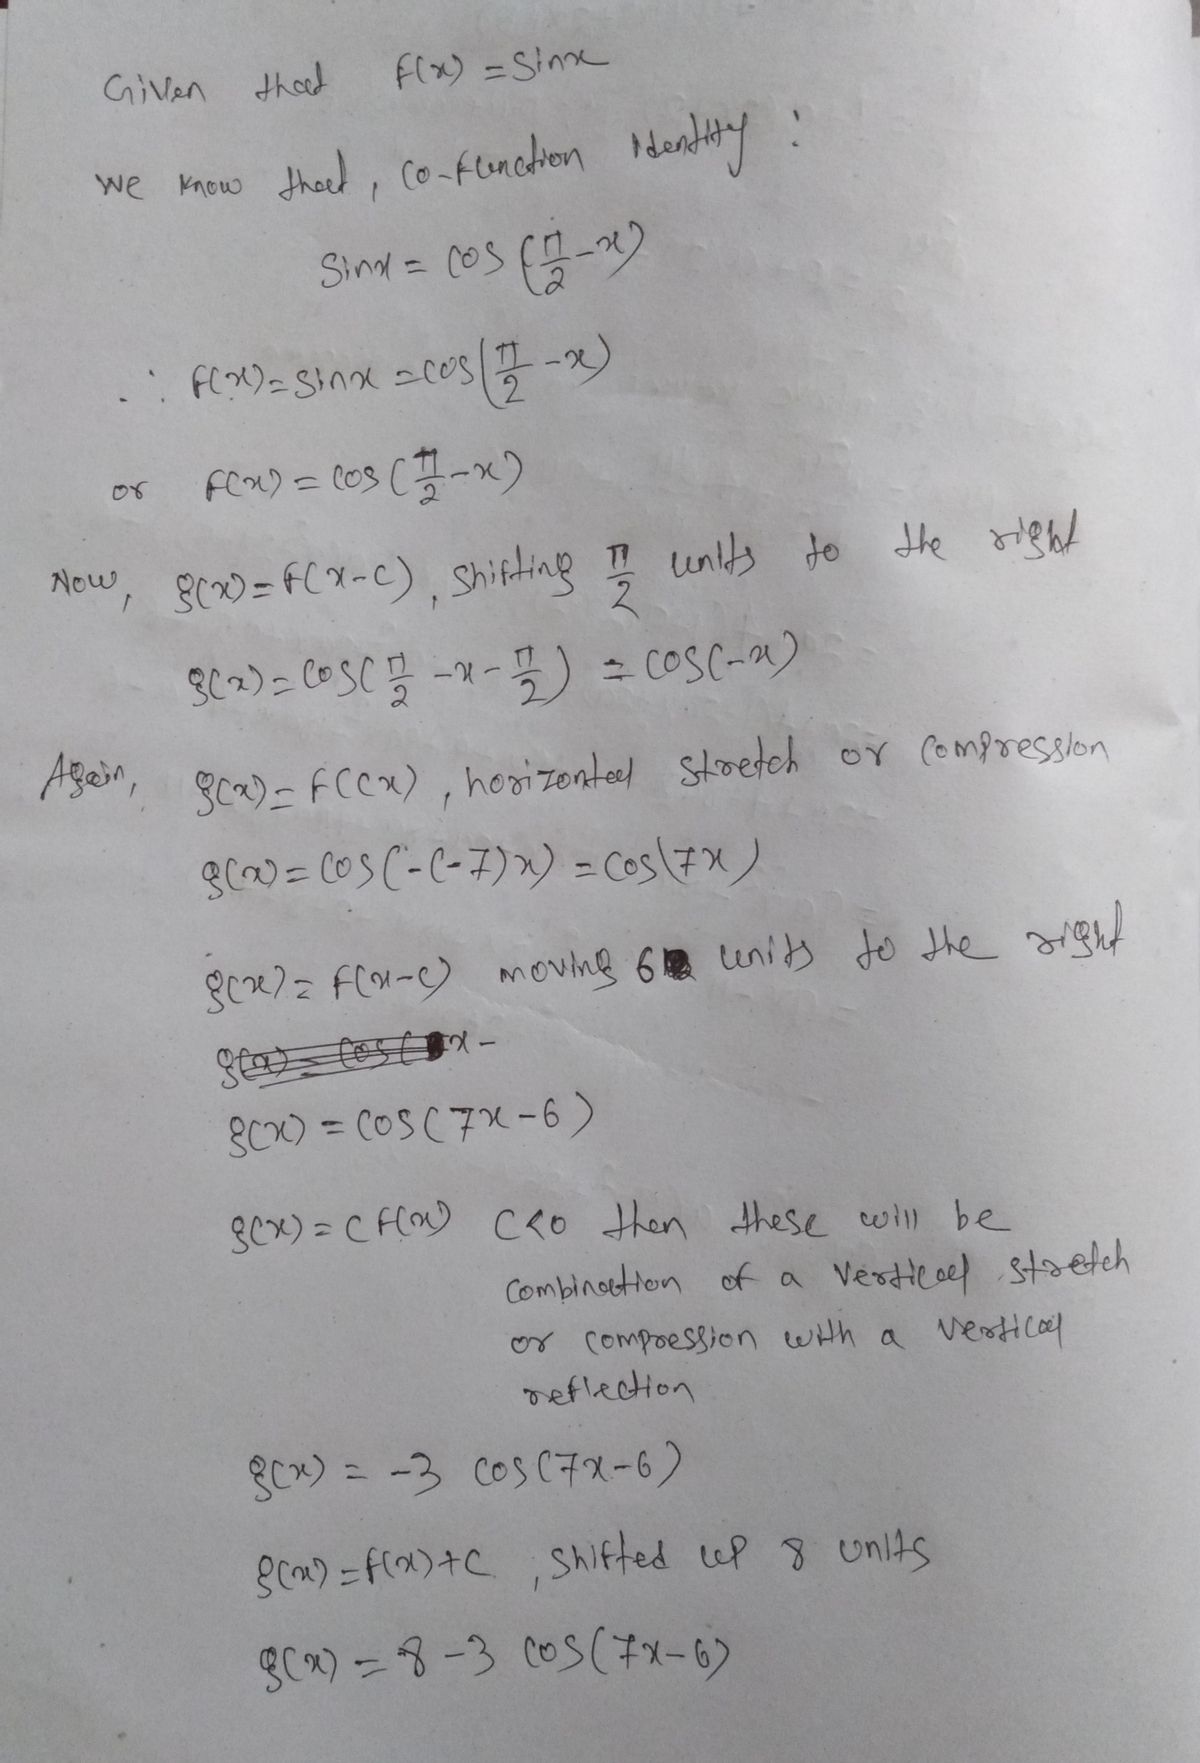 Given that f(x) = sinx
we know that, co-function identity :
sinx = cos (π/2 - x)
∴ f(x) = sinx = cos(π/2 - x)
or f(x) = cos (π/2 - x)
Now, g(x) = f(x-c), shifting π/2 units to the right
g(x) = cos(π/2 - x - π/2) = cos(-x)
Again, g(x) = f(cx), horizontal stretch or compression
g(x) = cos(-(-7)x) = cos(7x)
g(x) = f(x-c) moving 6 units to the right
g(x) = cos( x -
g(x) = cos(7x-6)
g(x) = c f(x) c<0 then these will be
combination of a vertical stretch
or compression with a vertical
reflection
g(x) = -3 cos(7x-6)
g(x) = f(x)+c , shifted up 8 units
g(x) = 8-3 cos(7x-6)